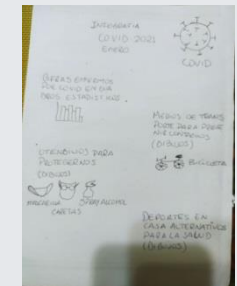 INFOGRAFIA
COVID 2021
ENERO
COVID
CIFRAS ENFERMOS
POR COVID EN DIA
GRAF. ESTADISTICAS.
MEDIOS DE TRANS
PORTE PARA PODER
(DIBUJOS)
BICICLETA
UTENSILIOS PARA
PROTEGERNOS
(DIBUJOS)
MASCARILLA
CARETAS
DEPORTES EN
CASA ALTERNATIVOS
PARA LA SALUD
(DIBUJOS)